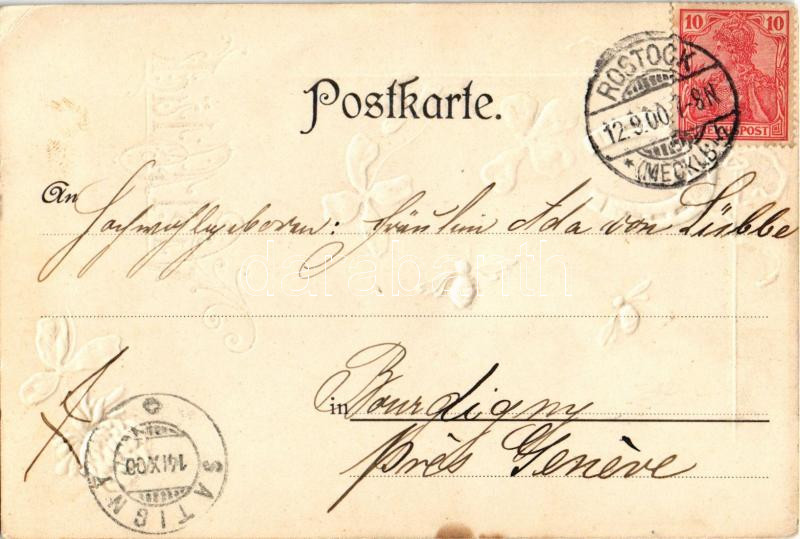 10 10
REICHSPOST
ROSTOCK
12.9.00. 7-8N
*(MECKLB.)
Postkarte.
An Hochwohlgeboren: Fräulein Ada von Lübbe
darabanth
in Bourdigny
près Genève
SATIGNY
14 IX 00